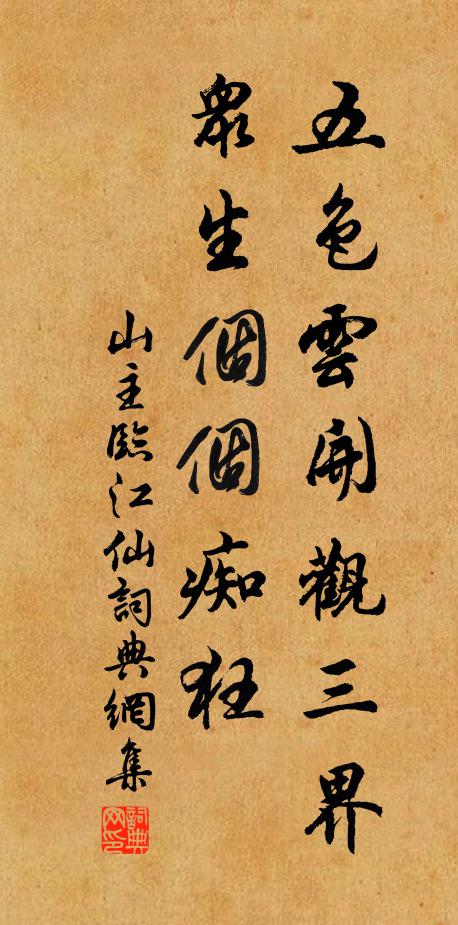 五色雲開觀三界
眾生個個痴狂
山主臨江仙詞典網集
詞典网印